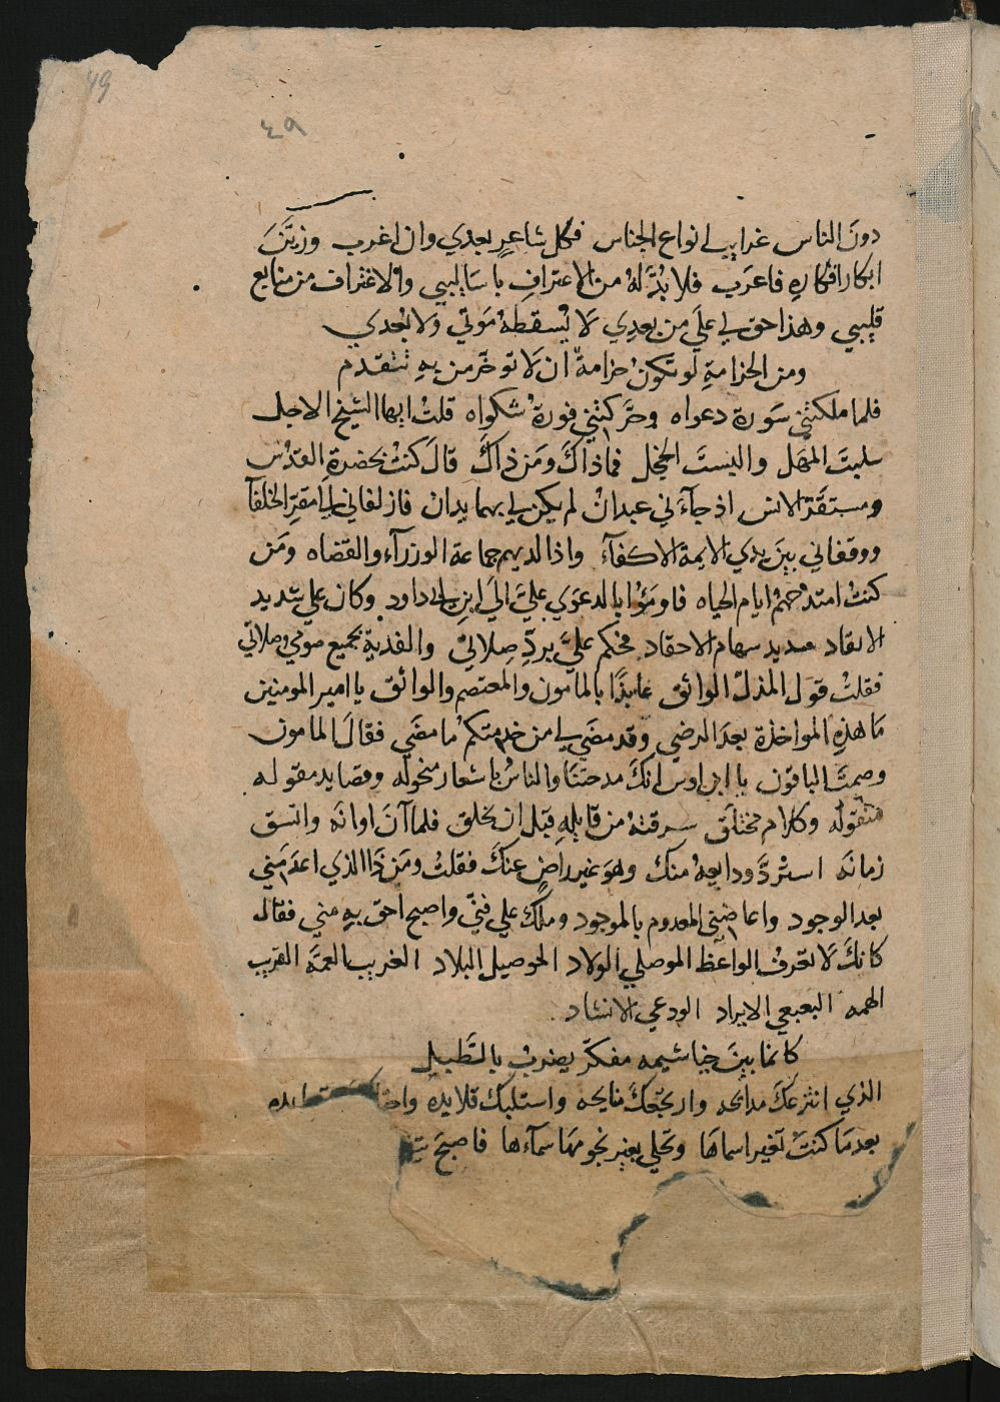 49
٤٩
دونَ الناس غرايب انواع الجناس فكل شاعرٍ بعدي وان اغرب وزيَّنَ
ابكار افكارهِ فاعرَب فلا بُدَّ لهُ من الاعترافِ باسَاليبي والاغتراف من منابع
قليبي وهذا حق لي علَي من بعدِي لَا يُسقطهُ مَوتي ولا بُعدي
ومن الحزامةِ لو تكونُ حزامةً ان لَا توخَّر من بهِ تتقدم
فلما ملكتني سَورة دعواه وحرَّكتني فورةُ شكواه قلتُ ايها الشيخ الاجل
سلبتَ المهَل والبستَ الخجل فماذاكَ ومَن ذاكَ قالَ كنتُ بحضرةِ القدُس
ومستقَرّ الانس اذ جآءَني عبدانُ لم يكن لي بهما يدان فازلفاني الي مقرِّ الخلفآ
ووقفاني بين يدي الايمة الاكفآء واذا لديهم جماعة الوزرآء والقضاه ومَن
كنتُ امتدحهُم ايام الحياه فاومَؤا بالدعوَي عليَّ الَي ابنِ ابي داود وكان علي شديد
الانقاد سديد سهام الاحقاد فحكم عليَّ بردِّ صِلاتي والفدية بجميع صومي وصلاتي
فقلتُ قول المذلّ الواثق عايذًا بالمامون والمعتصم والواثق يا امير المومنين
مَا هذِهِ المواخذة بعدَ الرضي وقد مضَي لي من خدمتكمُ ما مضَي فقالَ المامون
وصمتَ الباقون يا ابن اوس انكَ مدحتنَا والناسُ باشعار منحوله وقصايد مقوله
منقوله وكلام مختلَق سرقتهُ من قايلهِ قبل ان يخلق فلما آنَ اوانَه واتسق
زمانَه استردَّ ودايعهُ منكَ وهوَ غير راضٍ عنكَ فقلتُ ومَن ذَا الذي اعدَمَني
بعد الوجود واعاضني المعدوم بالموجود وملك علي فنيّ واصبح احق بهِ مني فقالَ
كانكَ لَا تعرفُ الواعظ الموصلي الولاد الحوصيل البلاد الغريب العمَّه القريب
الهمه البعبعي الايراد الودعي الانشاد
كانما بينَ خياشيمه مفكرّ يضربُ بالطَّبلِ
الذي انتزعكَ مدايحه وارتجعكَ منايحه واستلبك قلايده
بعد مَا كنتَ تغير اسماهَا وتحلي بغير نجومهَا سمآءها فاصبحَ